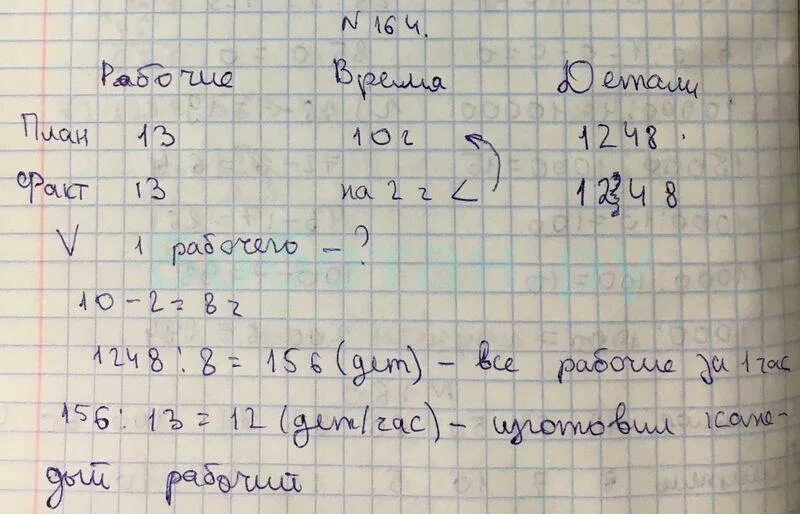 N 164.
Рабочие Время Детали
План 13 10 ч 1248.
Факт 13 на 2 ч < 1248
V 1 рабочего - ?
10 - 2 = 8 ч
1248 : 8 = 156 (дет) - все рабочие за 1 час
156 : 13 = 12 (дет/час) - изготовил каж-
дый рабочий